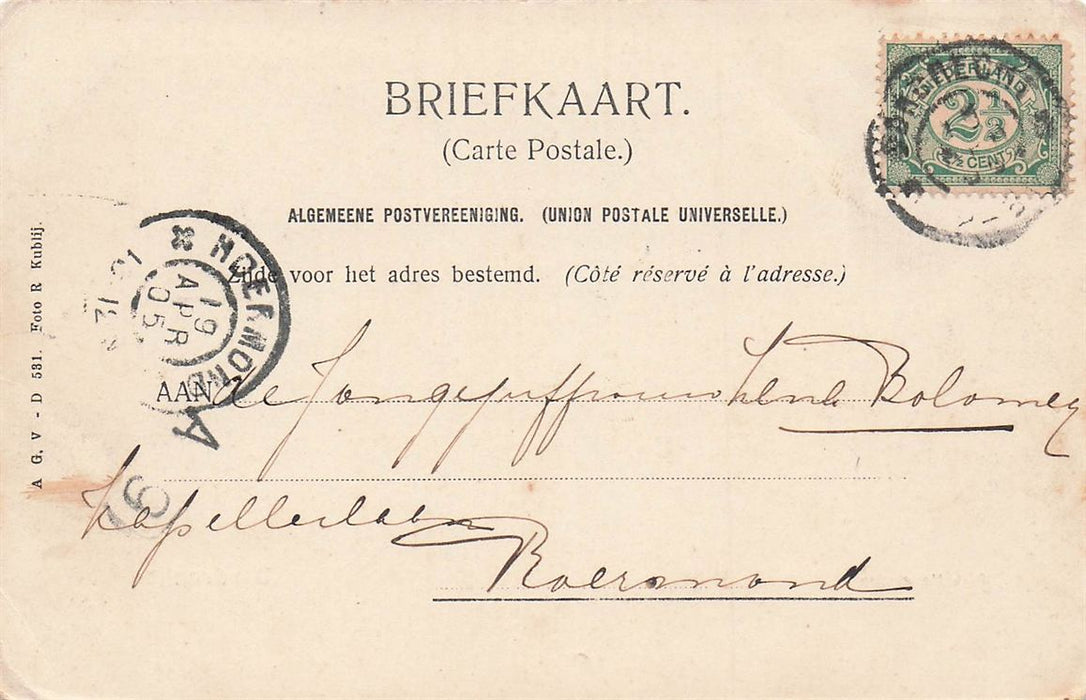 BRIEFKAART.
(Carte Postale.)
ALGEMEENE POSTVEREENIGING. (UNION POSTALE UNIVERSELLE.)
Zijde voor het adres bestemd. (Côté réservé à l'adresse.)
NEDERLAND
2½
2½ CENT
ROERMOND
19
APR
05
A G. V - D 531. Foto R Kublij.
AAN de Jongejuffrouw Bolomey
Kapellerlaan
Roermond
A